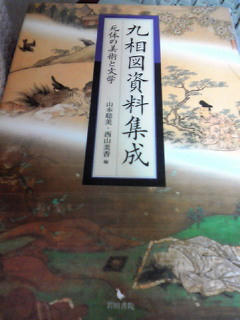 九相図資料集成
死体の美術と文学
山本聡美・西山美香 編
岩田書院